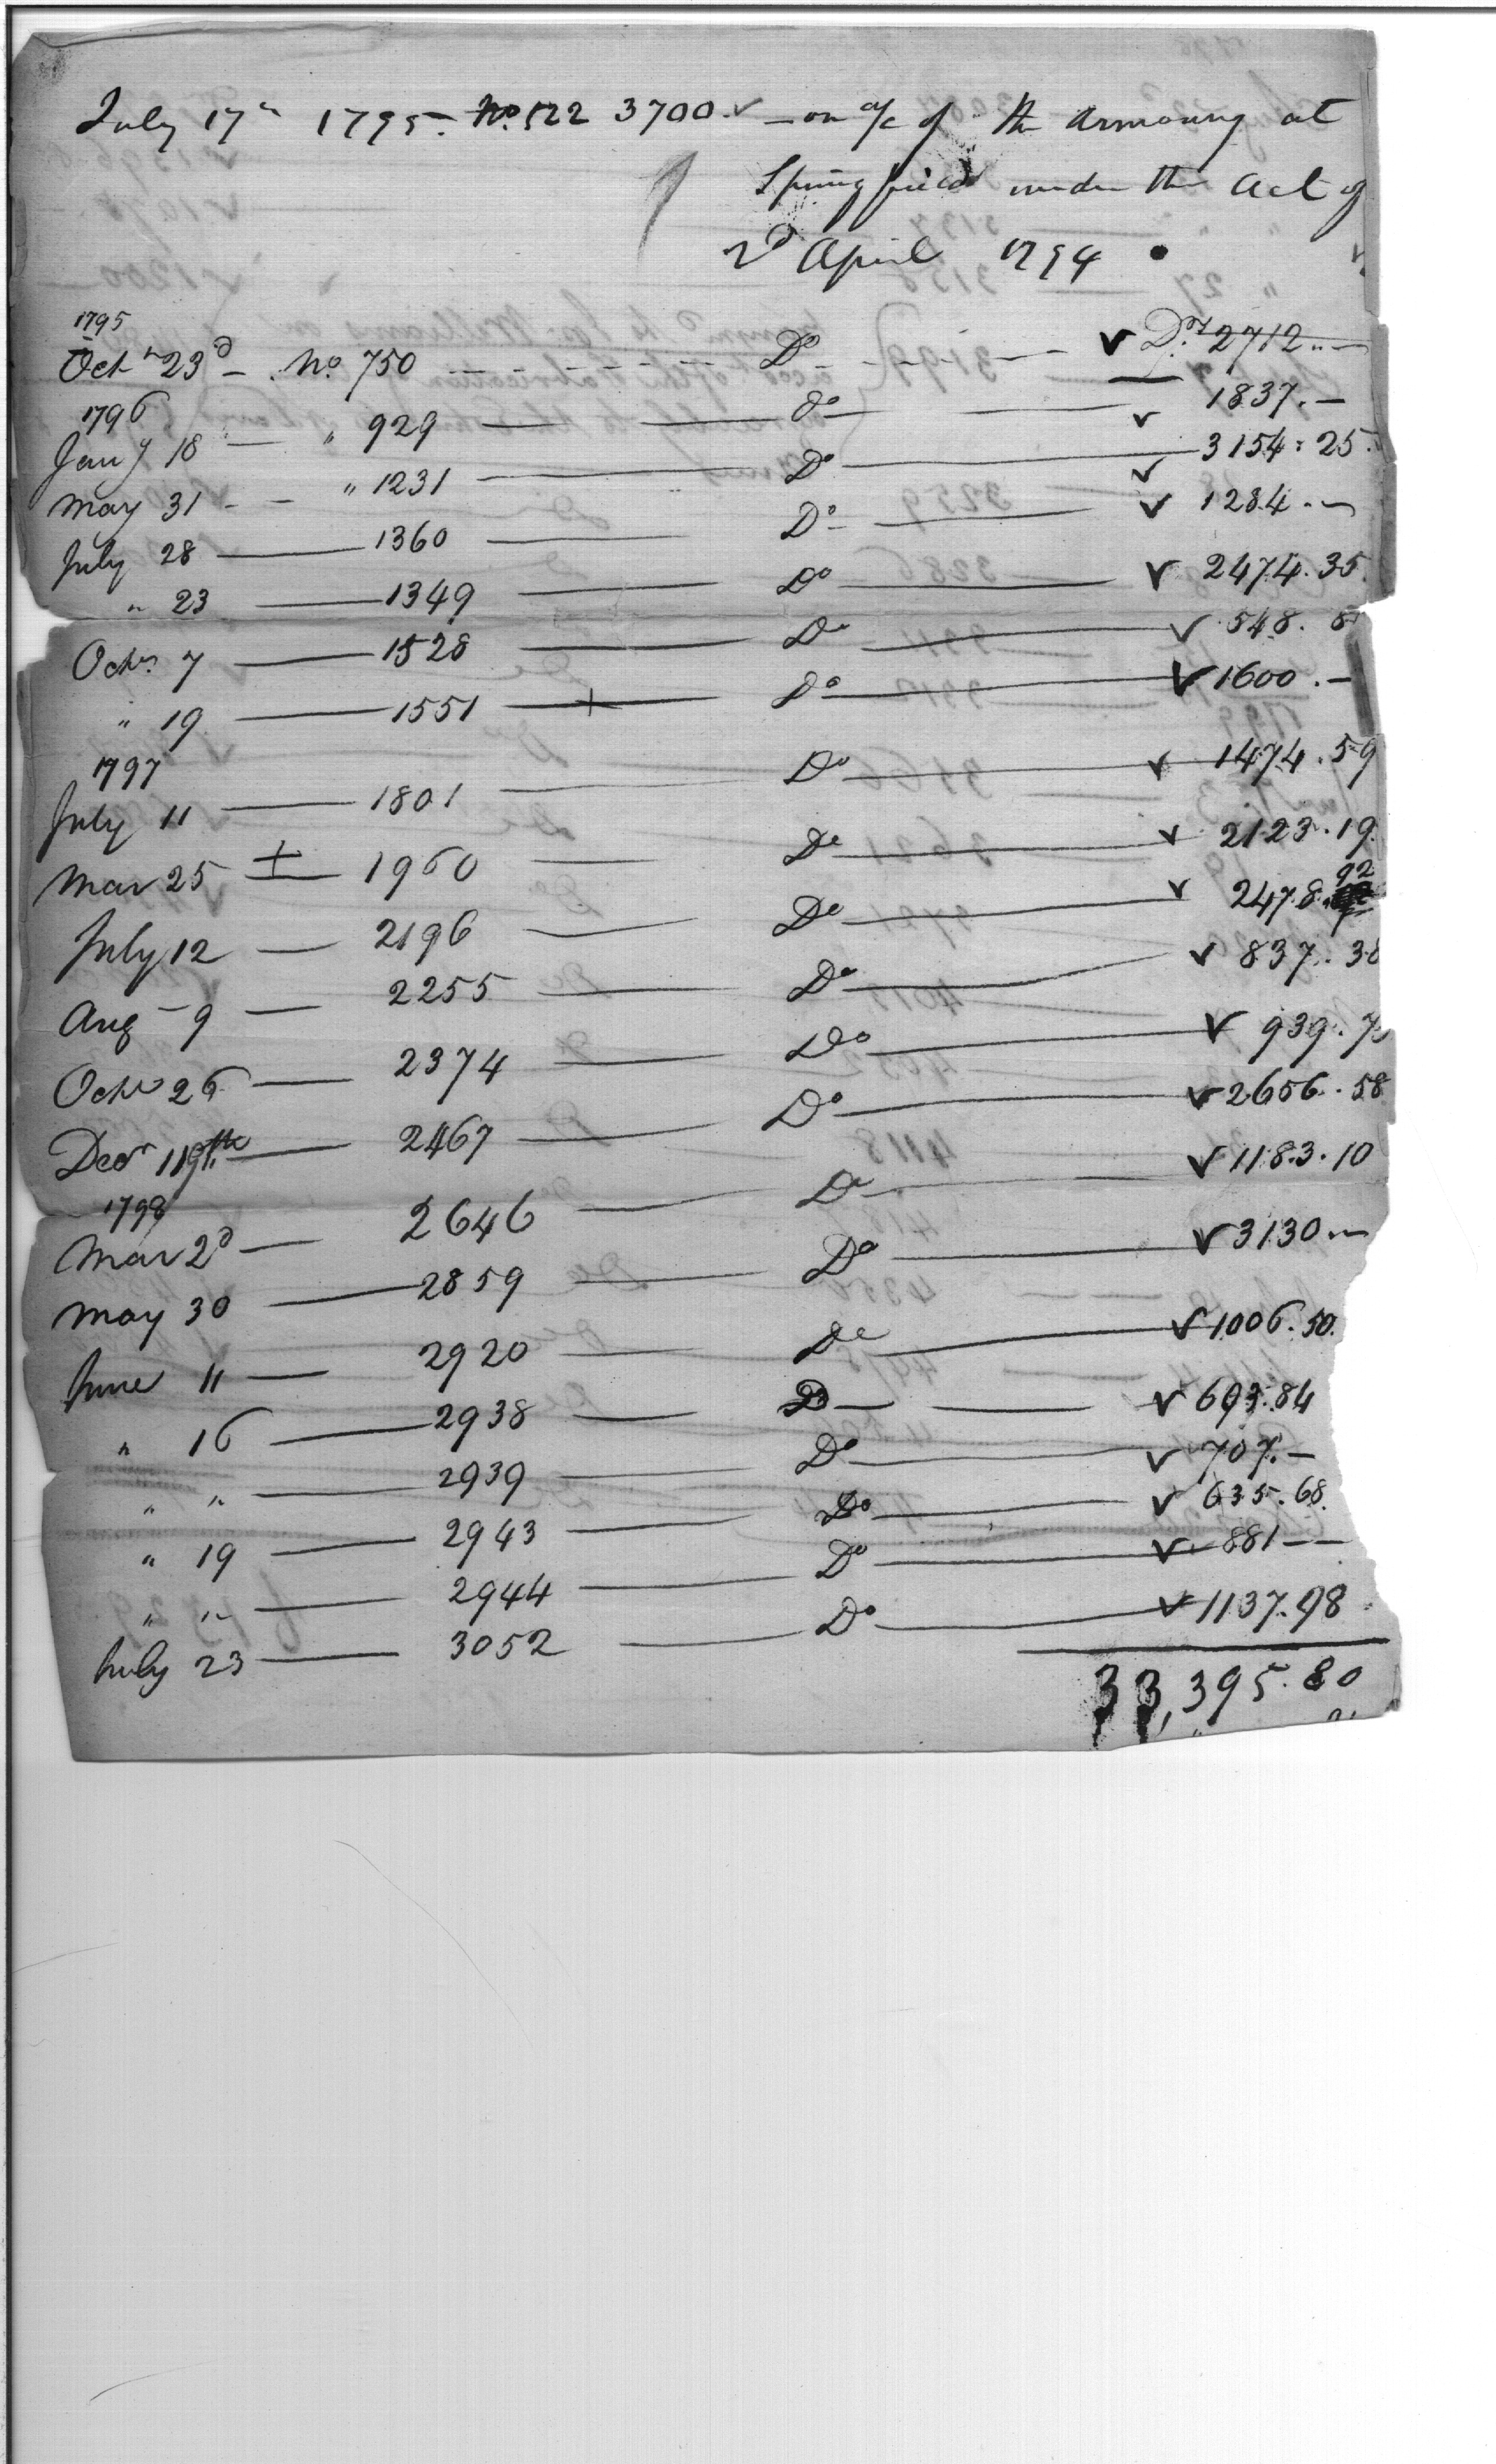 July 17th 1795. No. 522 3700. ✓ — on a/c of the Armoury at
Springfield under the Act of
2d April 1794
1795
Octr 23d — No. 750 — Do — ✓ Drs 2712 .. —
1796
Jany 18 — " 929 — do — ✓ 1837. —
May 31 — " 1231 — Do — ✓ 3154 : 25.
July 28 — 1360 — Do — ✓ 1284 . —
" 23 — 1349 — Do — ✓ 2474. 35.
Octr. 7 — 1528 — Do — ✓ 548.
" 19 — 1551 — Do — ✓ 1600 . —
1797
July 11 — 1801 — Do — ✓ 1474. 59
Mar 25 — 1960 — Do — ✓ 2123. 19.
July 12 — 2196 — Do — ✓ 2478. 92
Aug — 9 — 2255 — Do — ✓ 837. 38
Octr 26 — 2374 — Do — ✓ 939.
Decr 119th — 2467 — Do — ✓ 2656. 58
1798
Mar 2d — 2646 — Do — ✓ 1183. 10
May 30 — 2859 — Do — ✓ 3130 . —
June 11 — 2920 — Do — ✓ 1006. 50.
" 16 — 2938 — Do — ✓ 693. 84
" " — 2939 — Do — ✓ 707. —
" 19 — 2943 — Do — ✓ 635. 68.
" " — 2944 — Do — ✓ 881 — —
July 23 — 3052 — Do — ✓ 1137. 98
33,395. 80